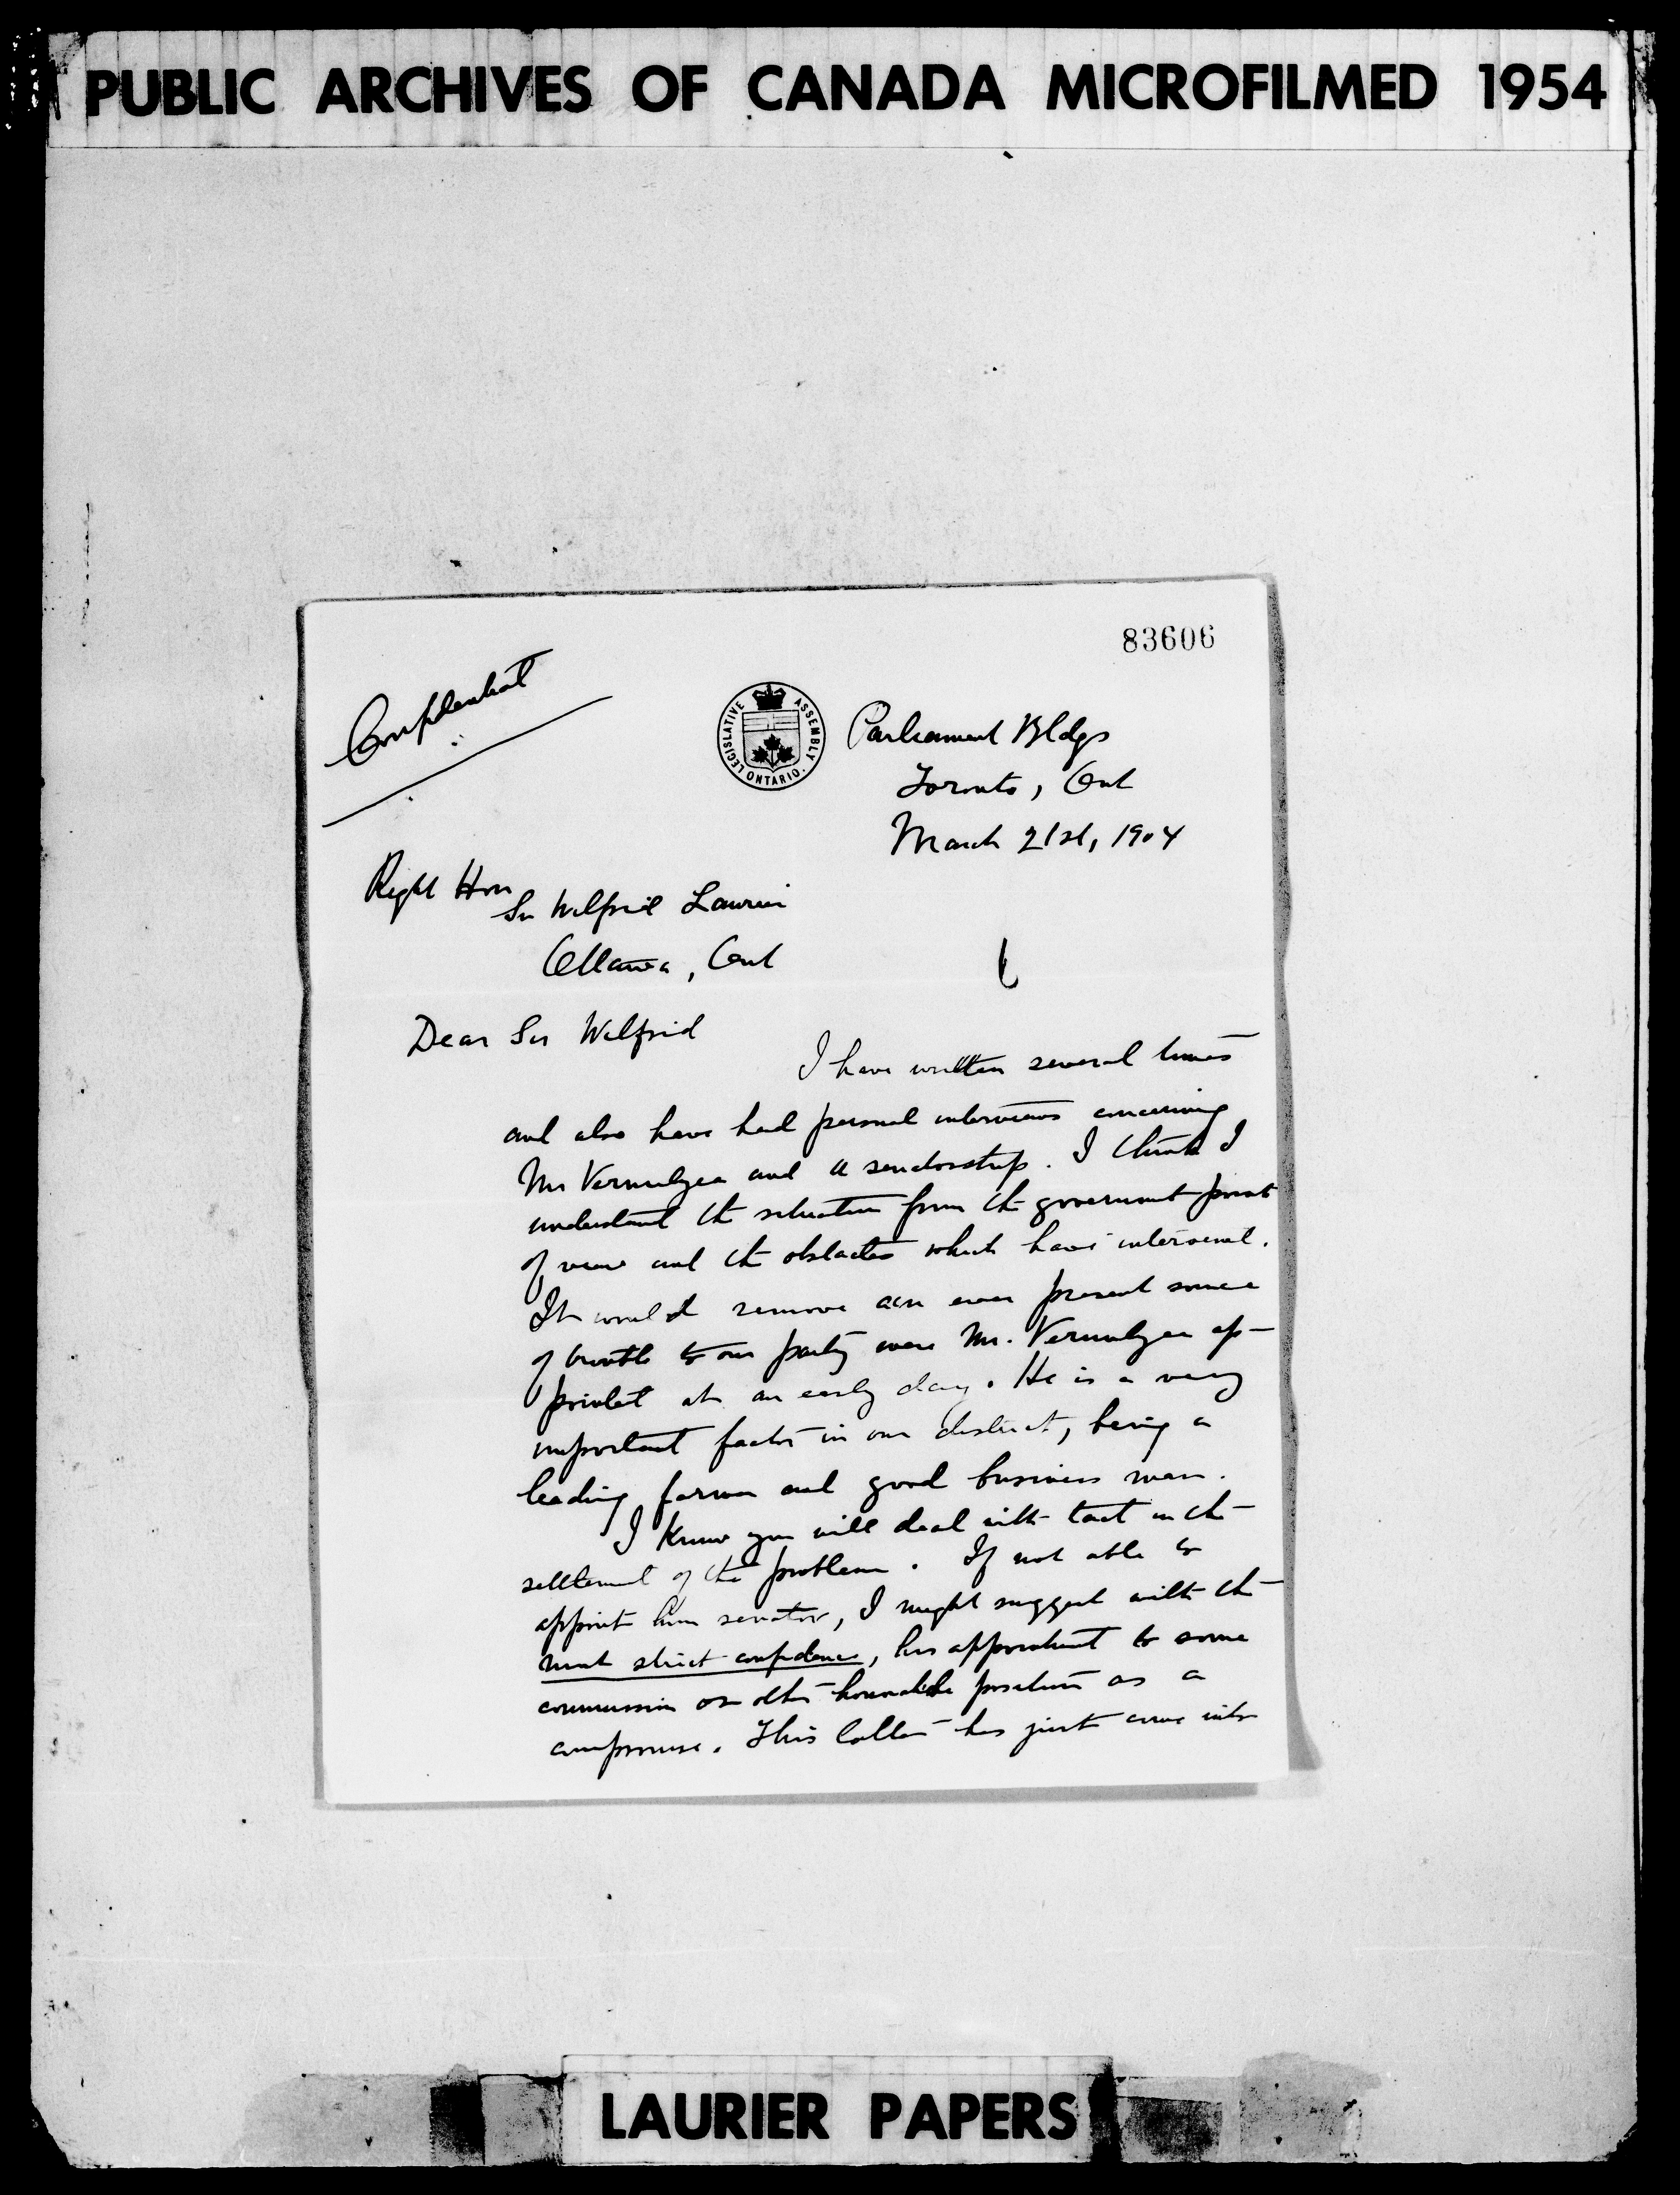 PUBLIC ARCHIVES OF CANADA MICROFILMED 1954
83606
Confidential
LEGISLATIVE ASSEMBLY ONTARIO.
Parliament Bldgs
Toronto, Ont
March 21st, 1904
Right Hon
Sir Wilfrid Laurier
Ottawa, Ont
Dear Sir Wilfrid
I have written several times
and also have had personal interviews concerning
Mr Vermilyea and a senatorship. I think I
understand the situation from the government point
of view and the obstacles which have intervened.
It would remove an ever present source
of trouble to our party were Mr. Vermilyea ap-
pointed at an early day. He is a very
important factor in our district, being a
leading farmer and good business man.
I know you will deal with tact in the
settlement of the problem. If not able to
appoint him senator, I might suggest with the
most strict confidence, his appointment to some
commission or other honorable position as a
compromise. This latter has just come into
LAURIER PAPERS